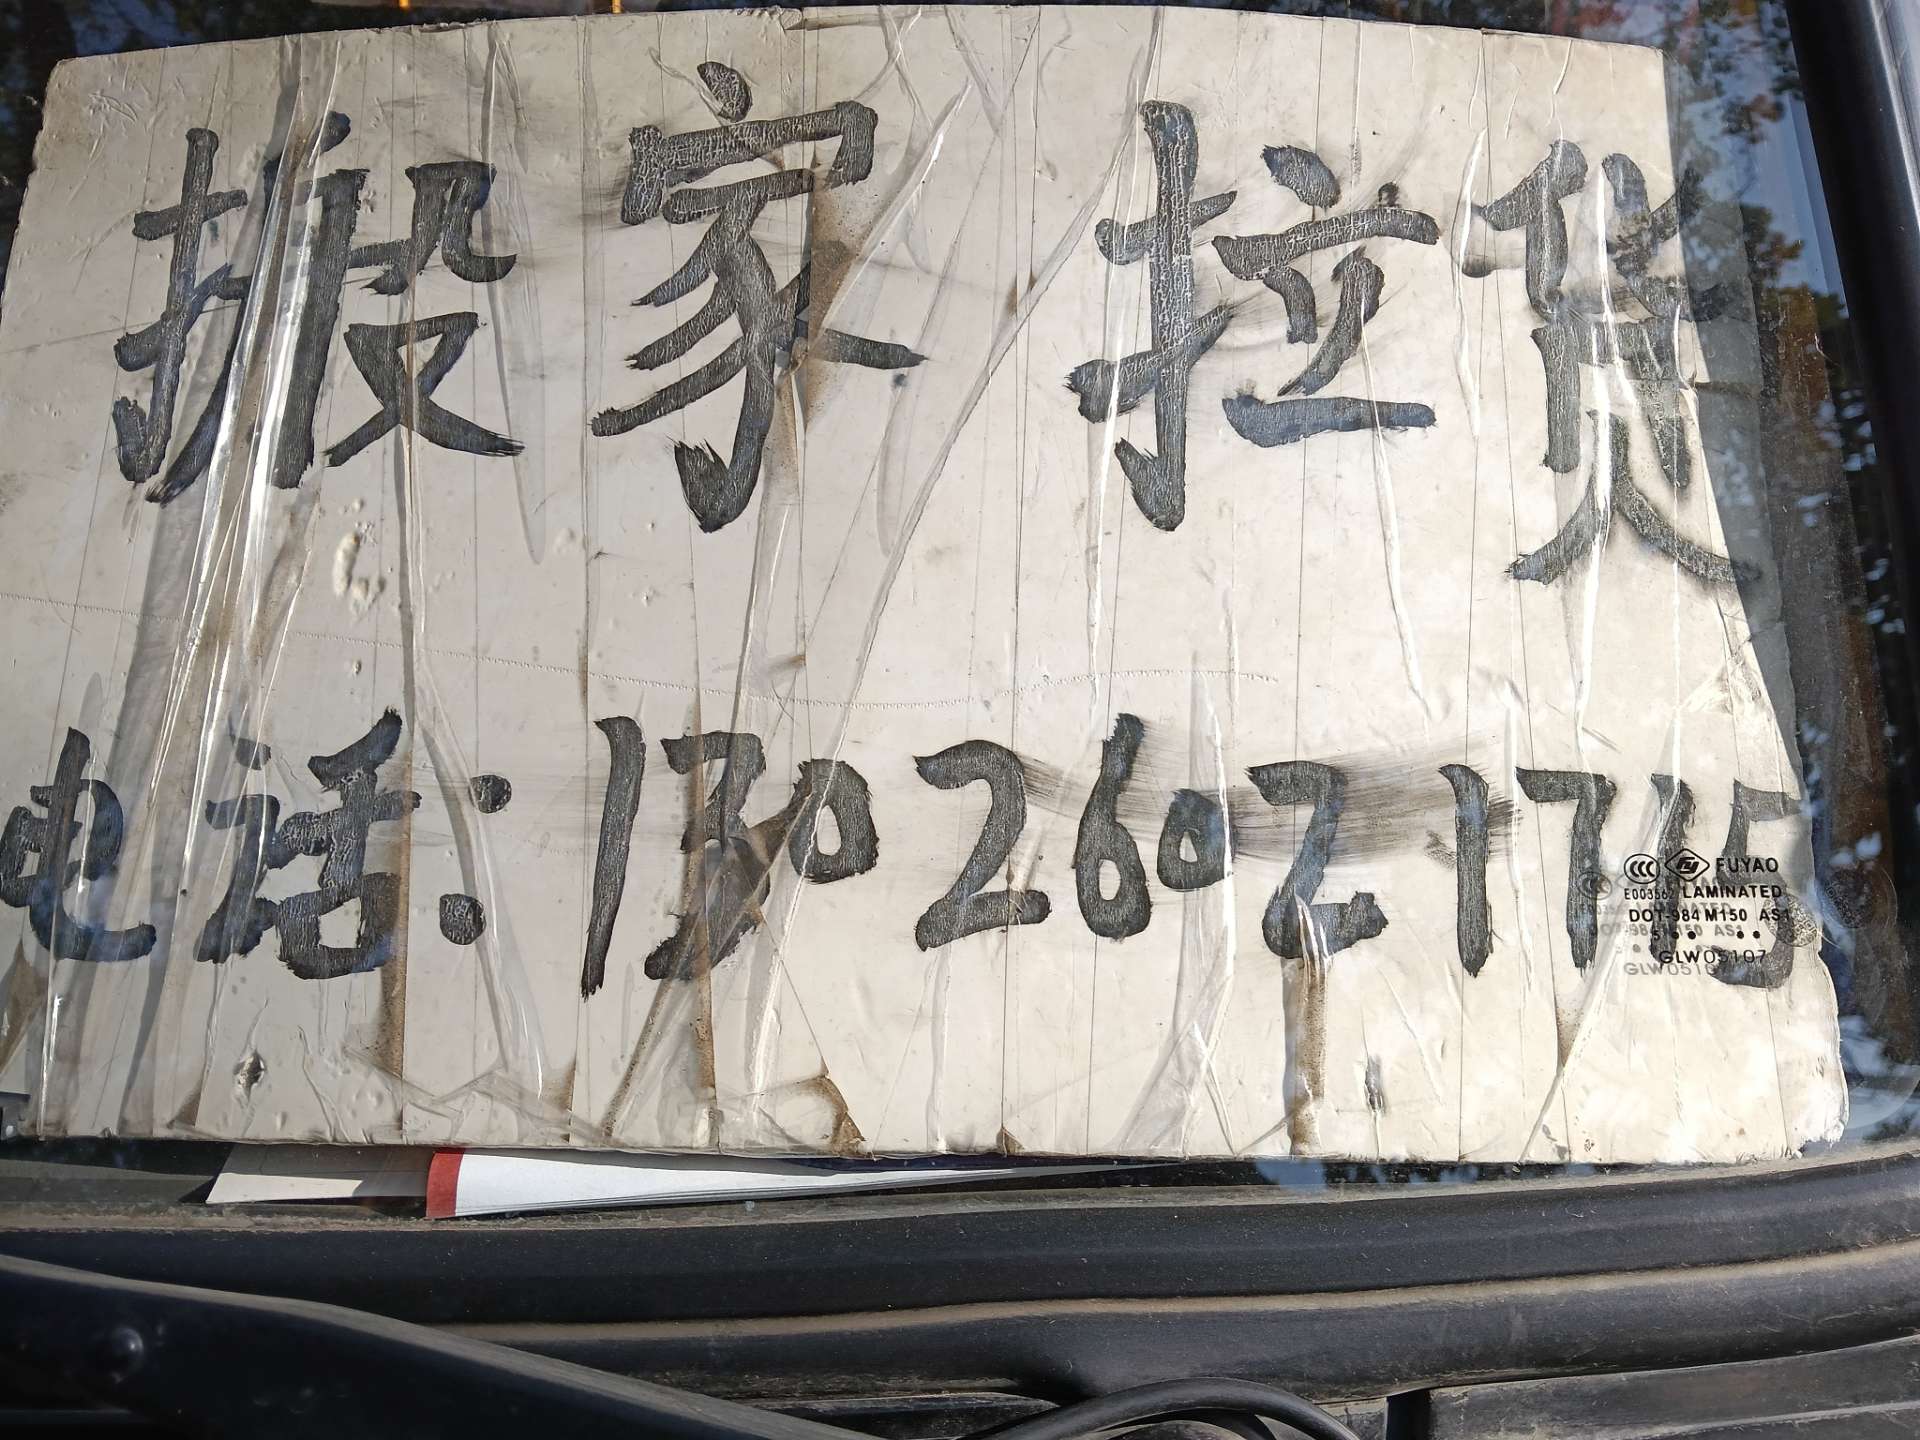 搬家 拉货
电话:13026021715
FUYAO
E003562 LAMINATED
DOT-984 M150 AS1
GLW05107